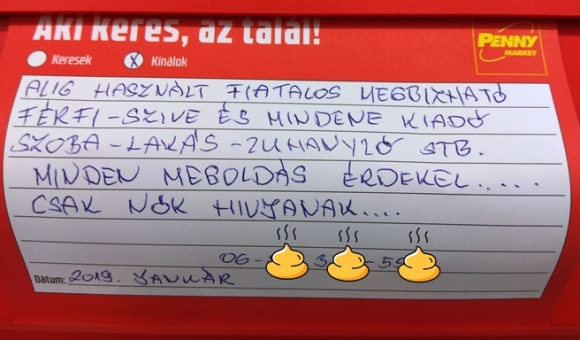 Aki keres, az talál!
PENNY
MARKET
Keresek
X Kínálok
ALIG HASZNÁLT FIATALOS MEGBIZHATÓ
FÉRFI-SZIVE ÉS MINDENE KIADÓ
SZOBA-LAKÁS-ZUHANYZÓ STB.
MINDEN MEGOLDÁS ÉRDEKEL.....
CSAK NŐK HIVJANAK....
06- 3 -5
Dátum: 2019. JANUÁR